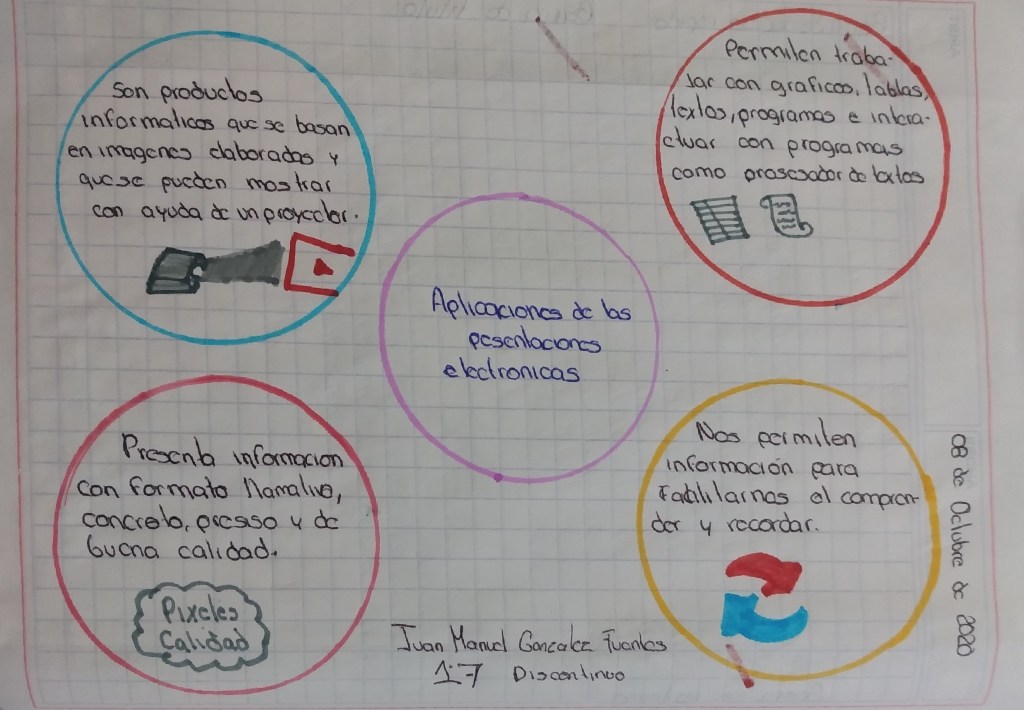 Son productos
informaticos que se basan
en imagenes elaboradas y
que se pueden mostrar
con ayuda de un proyector.
Permiten traba-
jar con graficos, tablas,
textos, programas e intera-
ctuar con programas
como prosesador de textos
Aplicaciones de las
pesentaciones
electronicas
Presenta informacion
con formato llamativo,
concreto, presiso y de
buena calidad.
Pixeles
Calidad
Nos permiten
información para
el compren-
der y recordar.
Juan Manuel Gonzalez Fuentes
1:7 Discontinuo
08 de Octubre de 2020